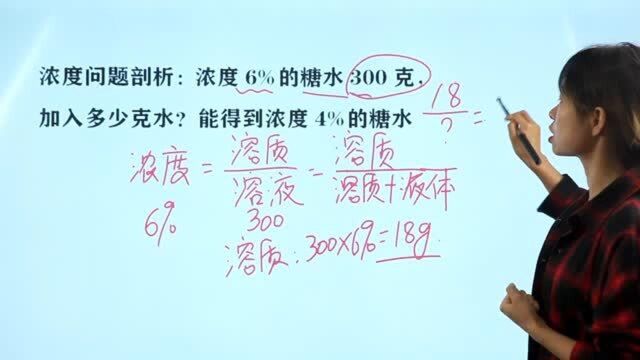 浓度问题剖析：浓度 6% 的糖水 300 克，
加入多少克水？能得到浓度 4% 的糖水 18/? =
浓度 = 溶质/溶液 = 溶质/溶质+液体
6% 300
溶质：300×6%=18g